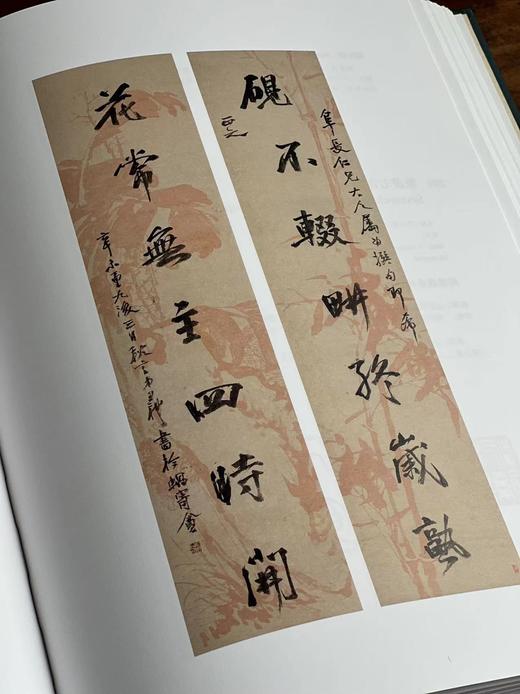 硯不輟畊終歲熟
阜長仁兄大人屬為撰句即希
正之
花常無主四時開
辛未重九後三日秋言弟 書於蝸寄盦